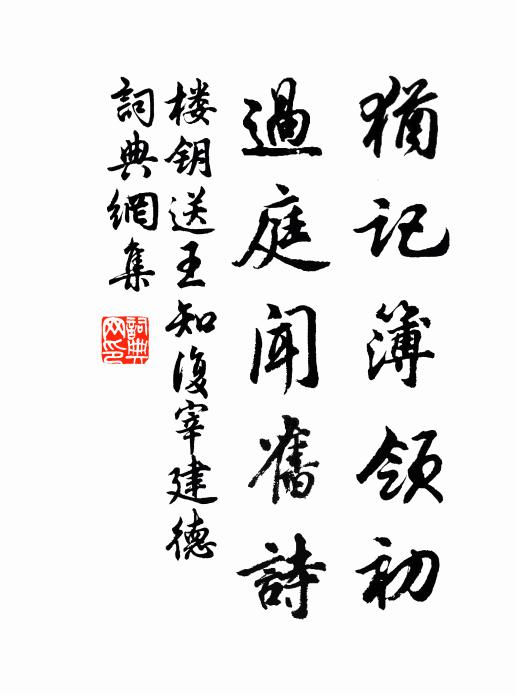 猶記簿領初
過庭聞舊詩
楼钥送王知復宰建德
詞典網集
詞典
网印